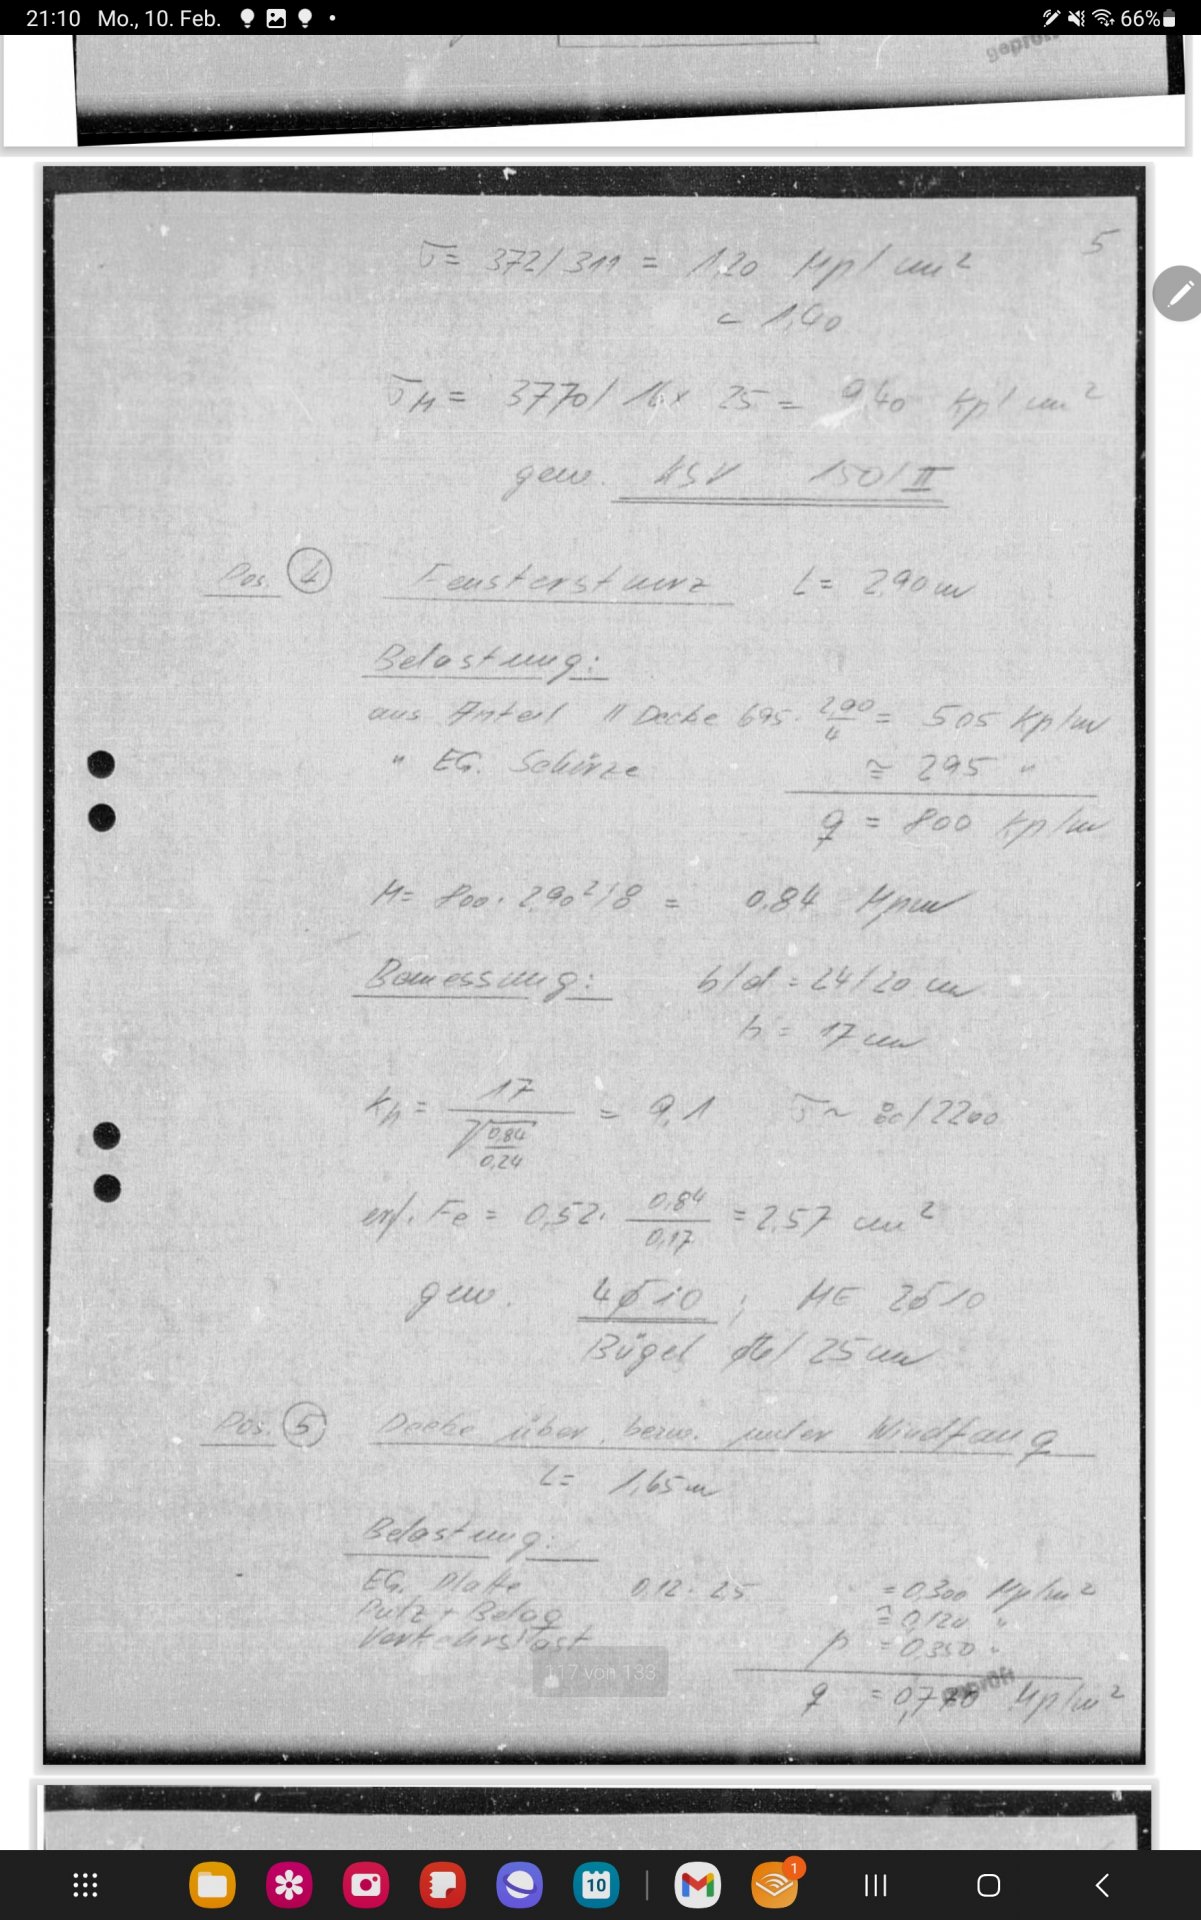 21:10 Mo., 10. Feb. 66%
geprüft
5
σ = 372/311 = 1,20 Mp/cm²
< 1,40
σM = 3770/16x25 = 9,40 kp/cm²
gew. 150/II
Pos. 4 Fenstersturz L = 2,90 m
Belastung:
aus Anteil II Decke 695 · 2,90/4 = 505 kp/m
" EG. Schürze ≅ 295 "
q = 800 kp/m
M = 800 · 2,90²/8 = 0,84 Mpm
Bemessung: b/d = 24/20 cm
h = 17 cm
kh = 17/√(0,84/0,24) = 9,1 σ ~ /2200
erf. Fe = 0,52 · 0,84/0,17 = 2,57 cm²
gew. 4ø10 ; ME 2ø10
Bügel ø6/25 cm
Pos. 5 Decke über, bezw. unter Windfang
L = 1,65 m
Belastung:
EG. Platte 0,12 · 2,5 = 0,300 Mp/m²
Putz + Belag ≅ 0,120 "
Verkehrslast p = 0,350 "
117 von 133
geprüft
q = 0,770 Mp/m²
10
1